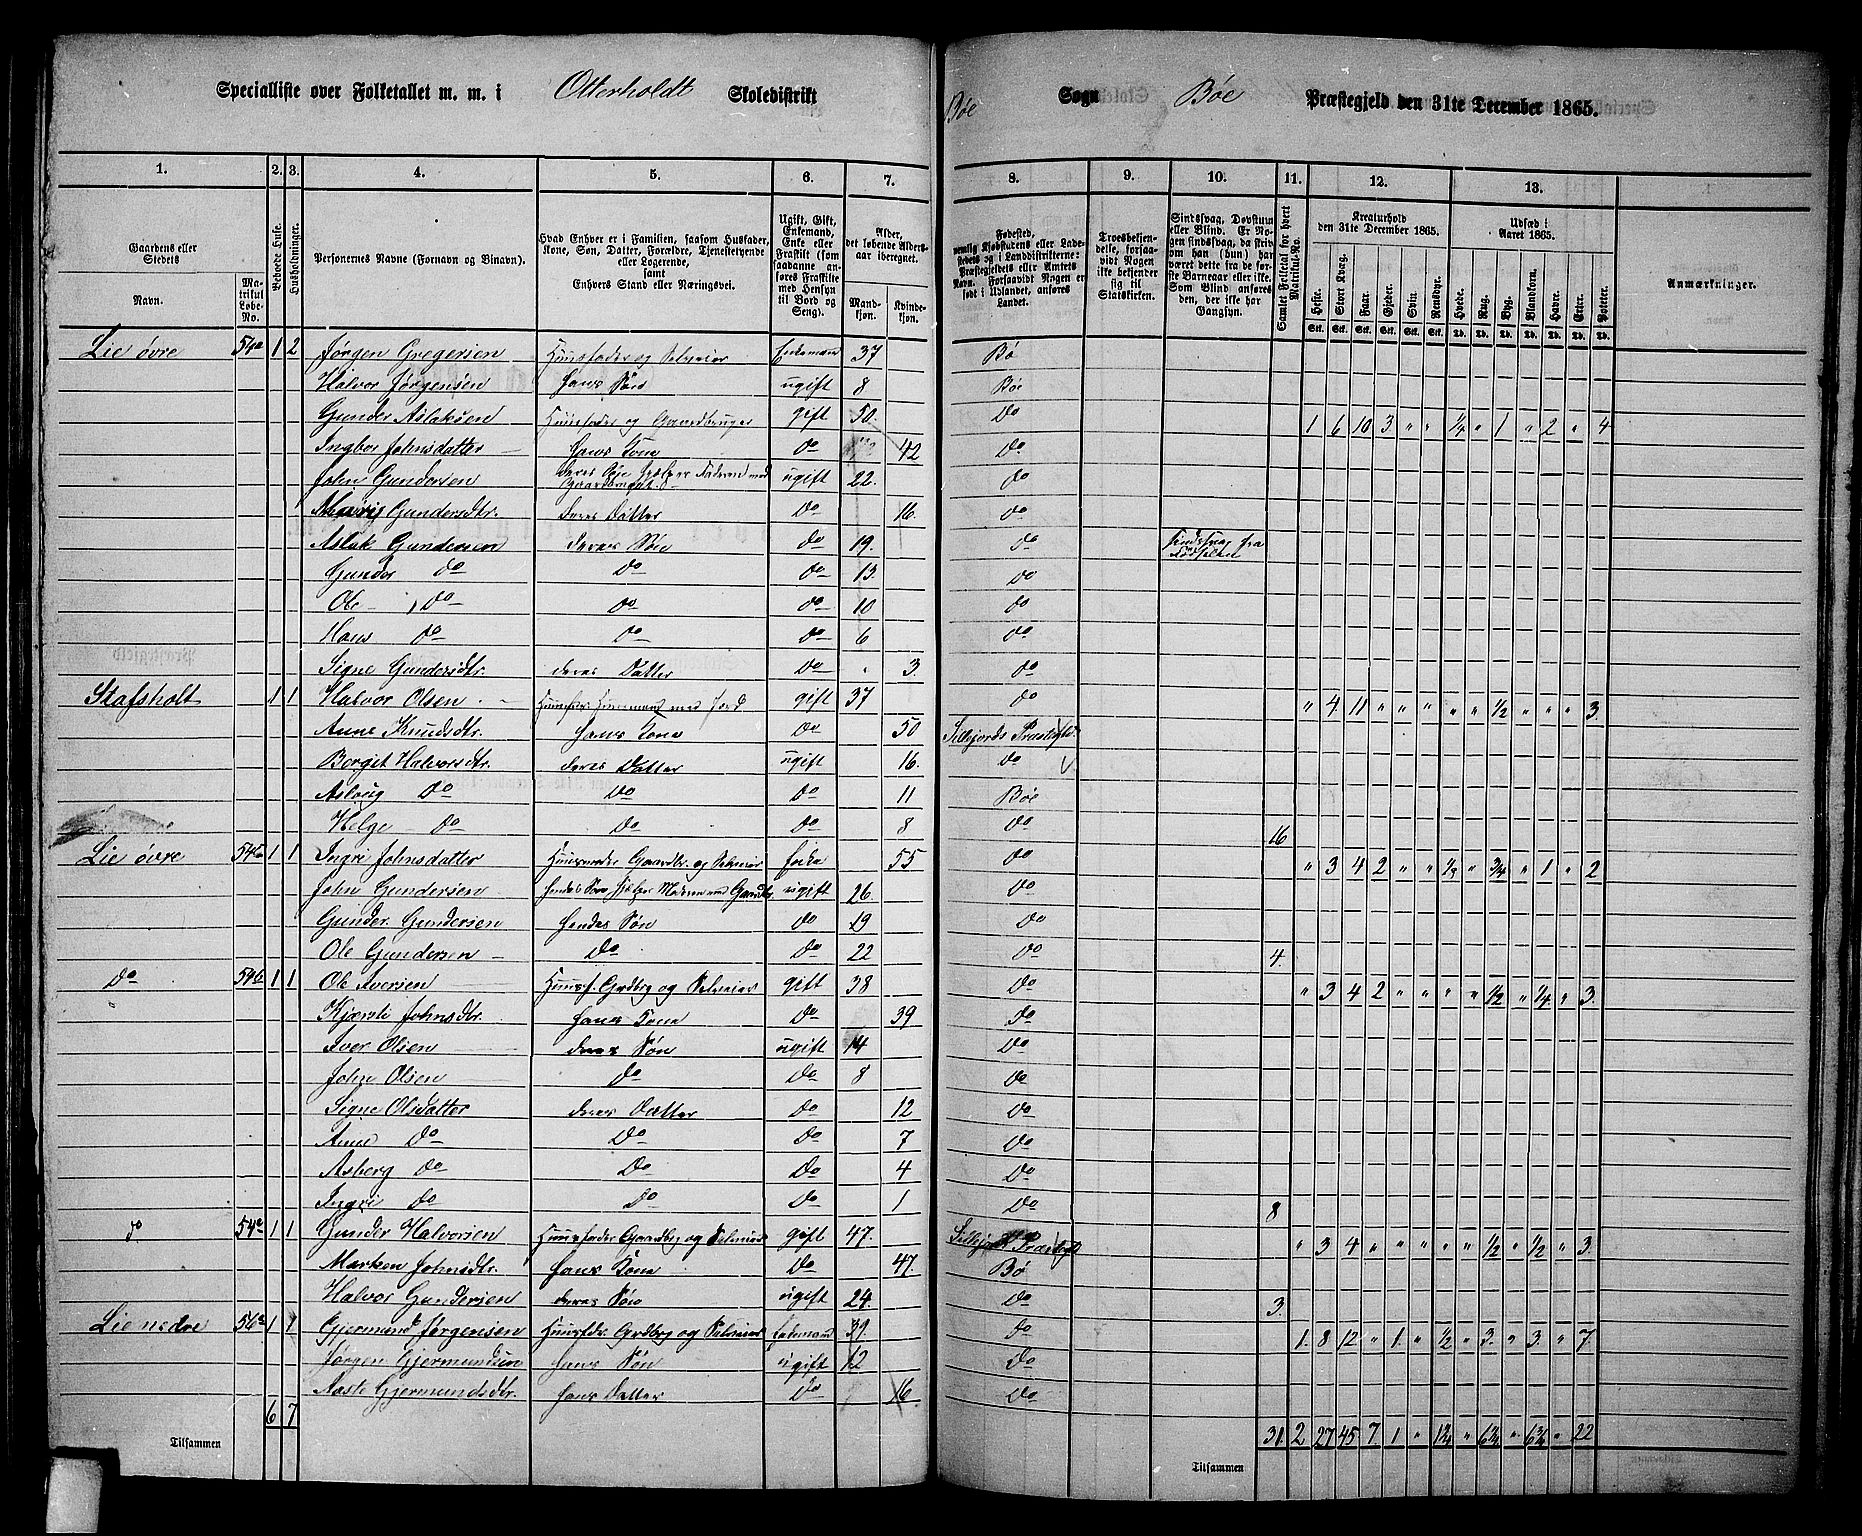 Specialliste over Folketallet m. m. i Otterholdt Skoledistrikt Bøe Sogn Bøe Præstegjeld den 31te December 1865.
1. 2. 3. 4. 5. 6. 7. 8. 9. 10. 11. 12. 13.
Gaardens eller Stedets
Navn.
Matrikul Løbe-No.
Beboede Huse.
Husholdninger.
Personernes Navne (Fornavn og Binavn).
Hvad Enhver er i Familien, saasom Husfader, Kone, Søn, Datter, Forældre, Tjenestetyende eller Logerende, samt Enhvers Stand eller Næringsvei.
Ugift, Gift, Enkemand, Enke eller Fraskilt (som saadanne anføres Fraskilte med Hensyn til Bord og Seng).
Alder, det løbende Alders-aar iberegnet.
Mandkjøn.
Kvindekjøn.
Fødested, nemlig Kjøbstadens eller Ladestedets og i Landdistrikterne: Præstegjeldets eller Amtets Navn. Forsaavidt Nogen er født i Udlandet, anføres Landet.
Troesbekjendelse, forsaavidt Nogen ikke bekjender sig til Statskirken.
Sindssvag, Døvstum eller Blind. Er Nogen sindssvag, da skriv om han (hun) har været dette fra de første Barneaar eller ikke. Som Blind anføres den, der ikke har Gangsyn.
Samlet Folketal for hvert Matrikul-No.
Kreaturhold den 31te December 1865.
Heste. Stort Kvæg. Faar. Gjeder. Svin. Rensdyr.
Udsæd i Aaret 1865.
Hvede. Rug. Byg. Blandkorn. Havre. Erter. Poteter.
Anmærkninger.
Stk. Stk. Stk. Stk. Stk. Stk. Td. Td. Td. Td. Td. Td. Td.
Lie øvre 54a 1 2 Jørgen Gregersen Huusfader og Selveier Enkemand 37 Bø
Halvor Jørgensen hans Søn ugift 8 Bøe
Gunder Aslaksen Huusfader og Gaardbruger gift 50. Do 1 6 10 3 " " 1/4 " 1 " 2 " 4
Ingbor Johnsdatter hans Kone Do 42 Do
John Gundersen deres Søn hjelper Faderen med Gaardbruget ugift 22. Do
Maris Gundersdtr. deres Datter Do 16. Do
Aslak Gundersen deres Søn Do 19. Do Sindssvag fra Fødselen
Gunder Do Do Do 13. Do
Ole Do Do Do 10 Do
Hans Do Do Do 6 Do
Signe Gundersdtr. deres Datter Do " 3. Do
Stafsholt 1 1 Halvor Olsen Huusf. Huusmand med Jord gift 37 Do " 4. 11 " " " " " 1/2 " " " 3.
Anne Knudsdtr. hans Kone Do 50 Sillejords Præstegjeld
Bergit Halvorsdtr. deres Datter ugift 16. Do
Aslaug Do Do Do 11 Bøe
Helge Do Do Do 8 Do 16
Lie øvre 1 1 Ingri Johnsdatter Huusmoder Gaardbr. og Selveier Enke 55 Do " 3 4 2 " " 1/8 " 3/4 " 1 " 2
John Gundersen hendes Søn hjelper Moderen med Gaardbr. ugift 26. Do
Gunder Gundersen hendes Søn Do 19 Do
Ole Gundersen Do Do 22 Do 4.
Do 54b 1 1 Ole Iversen Huusf. Grdbrg og Selveier gift 38 Do " 3 4 2 " " " " 1/2 " 1/4 " 3.
Kjersti Johnsdtr. hans Kone Do 39 Do
Iver Olsen deres Søn ugift 14 Do
John Olsen Do Do 8 Do
Signe Olsdatter deres Datter Do 12 Do
Anne Do Do Do 7 Do
Asberg Do Do Do 4 Do
Ingri Do Do Do 1 Do 8
Do 1 1 Gunder Halvorsen Huusfader Gaardbrg og Selveier gift 47. Sillejords Præstegjd " 3 4 " " " " " 1/2 " 1/2 " 3.
Marken Johnsdtr. hans Kone Do 47. Bø
Halvor Gundersen deres Søn ugift 24. Do 3.
Lie nedre 56a 1 1 Gjermund Jørgensen Huusfdr. Grdbrg og Selveier Enkemand 39. Do 1. 8 12 " 1. " 1/2 " 3. " 3. " 7.
Jørgen Gjermundsen hans Søn ugift 12 Do
Aaste Gjermundsdtr. hans Datter Do 16 Do
6 7
Tilsammen
31. 2 27 45 7. 1 " " " 22
Tilsammen